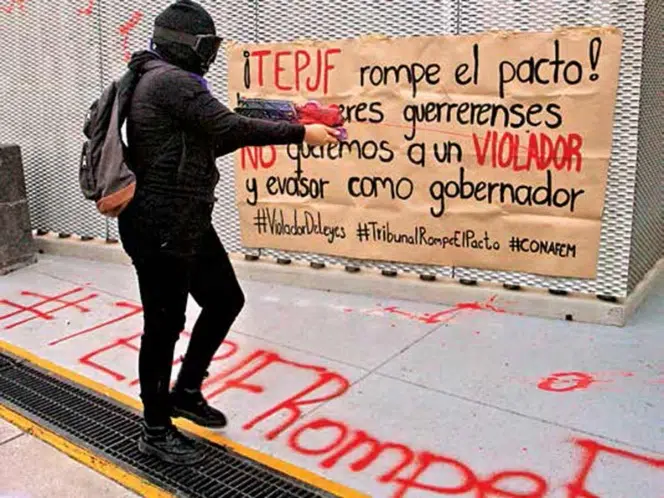 ¡TEPJF rompe el pacto!
guerrerenses
NO queremos a un VIOLADOR
y evasor como gobernador
#VioladorDeLeyes #TribunalRompeElPacto #CONAFEM
#T
TEPJFRompeE